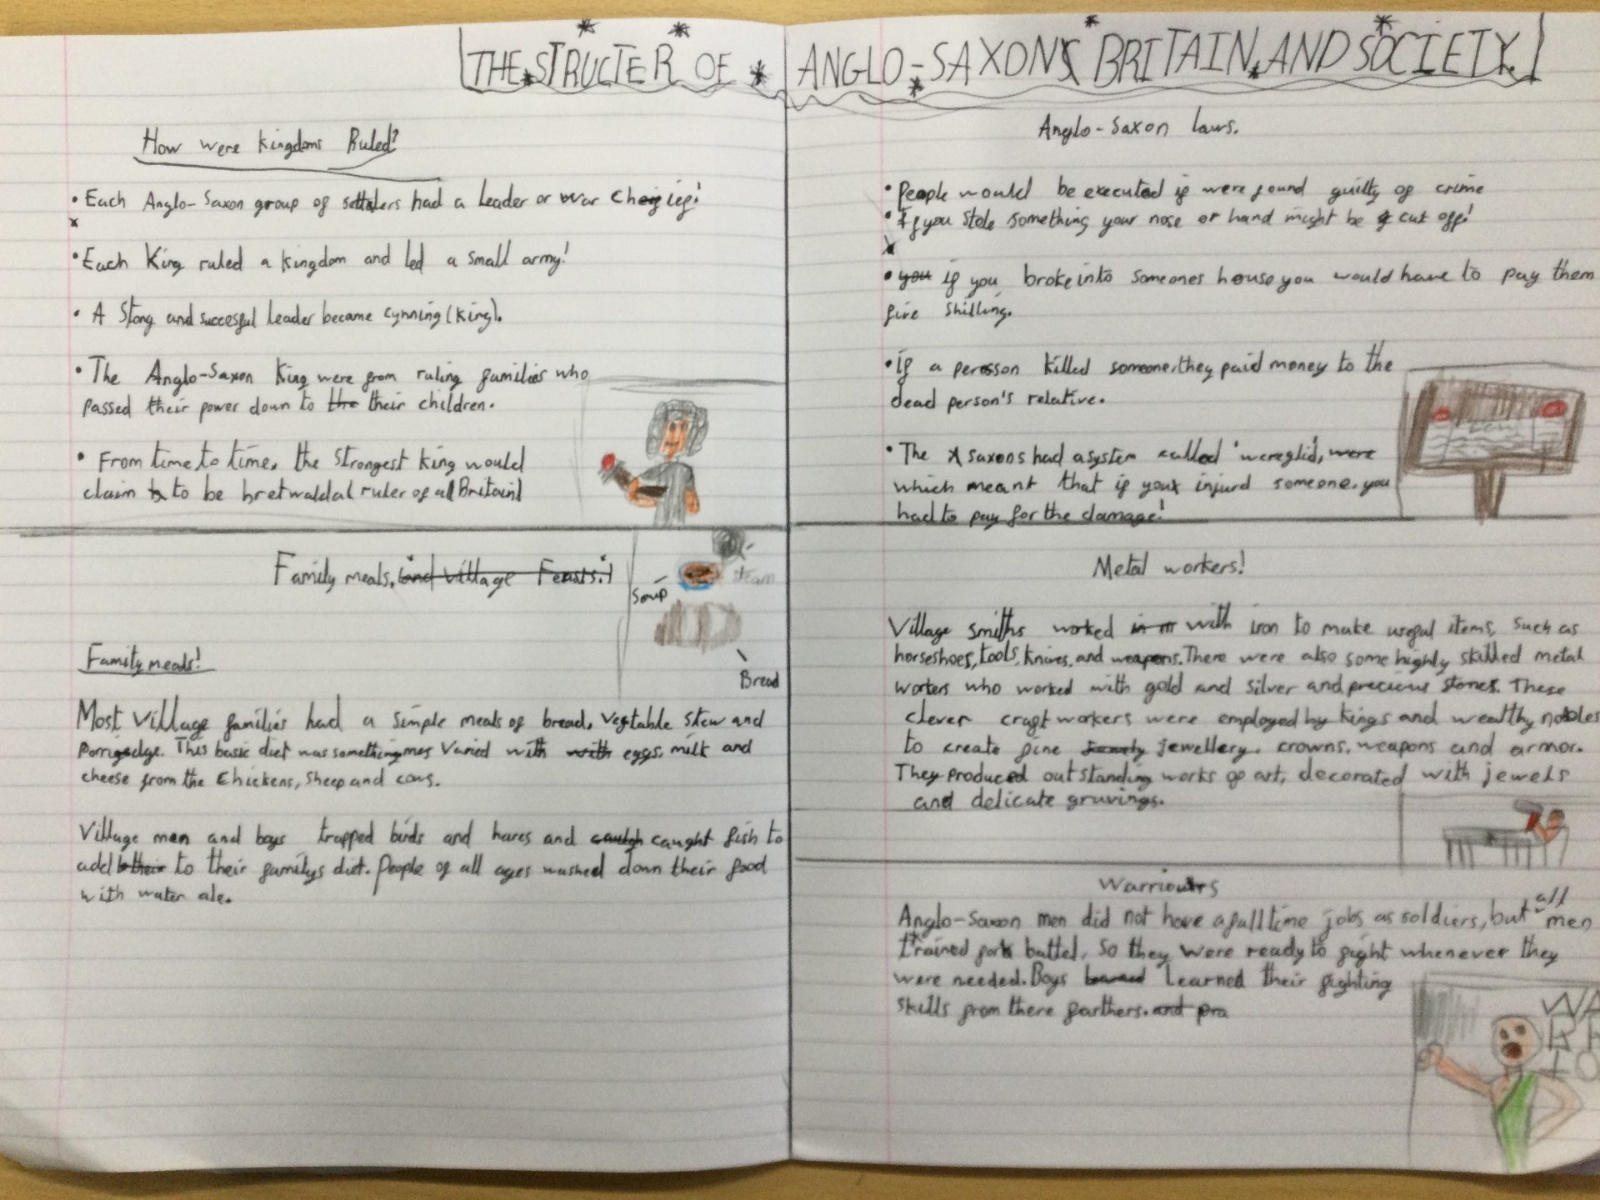 THE STRUCTER OF ANGLO-SAXONS BRITAIN AND SOCIETY.
How were kingdoms Ruled?
• Each Anglo-Saxon group of settelers had a Leader or war cheif!
• Each King ruled a kingdom and led a small army!
• A Stong and succesful Leader became cynning (king).
• The Anglo-Saxon King were from ruling families who
passed their power down to the their children.
• From time to time, the strongest king would
claim to be bretwaldal ruler of all Britain!
Family meals, (and Village Feasts!)
Soup
steam
Bread
Family meals!
Most Village families had a simple meals of bread, vegtable stew and
porrigedge. This basic diet was somethingmes varied with with eggs, milk and
cheese from the chickens, sheep and cows.
Village men and boys trapped birds and hares and caulgh caught fish to
add to their familys diet. People of all ages washed down their food
with water ale.
Anglo-Saxon laws.
• People would be executed if were found guilty of crime
• If you stole something your nose or hand might be cut off!
• you if you broke into someones house you would have to pay them
five shilling.
• If a person killed someone, they paid money to the
dead person's relative.
• The saxons had a system called 'wereglid', were
which meant that if your injurd someone, you
had to pay for the damage!
Law
Metal workers!
Village smiths worked in m with iron to make useful items, such as
horseshoes, tools, knives, and weapons. There were also some highly skilled metal
workers who worked with gold and silver and precious stones. These
clever craft workers were employed by kings and wealthy nobles
to create fine jewellery, crowns, weapons and armor.
They produced outstanding works of art, decorated with jewels
and delicate gruvings.
Warriours
Anglo-Saxon men did not have a full time jobs as soldiers, but all men
trained for battel, so they were ready to fight whenever they
were needed. Boys learned their fighting
skills from there farthers. and pra
WA
RR
IO